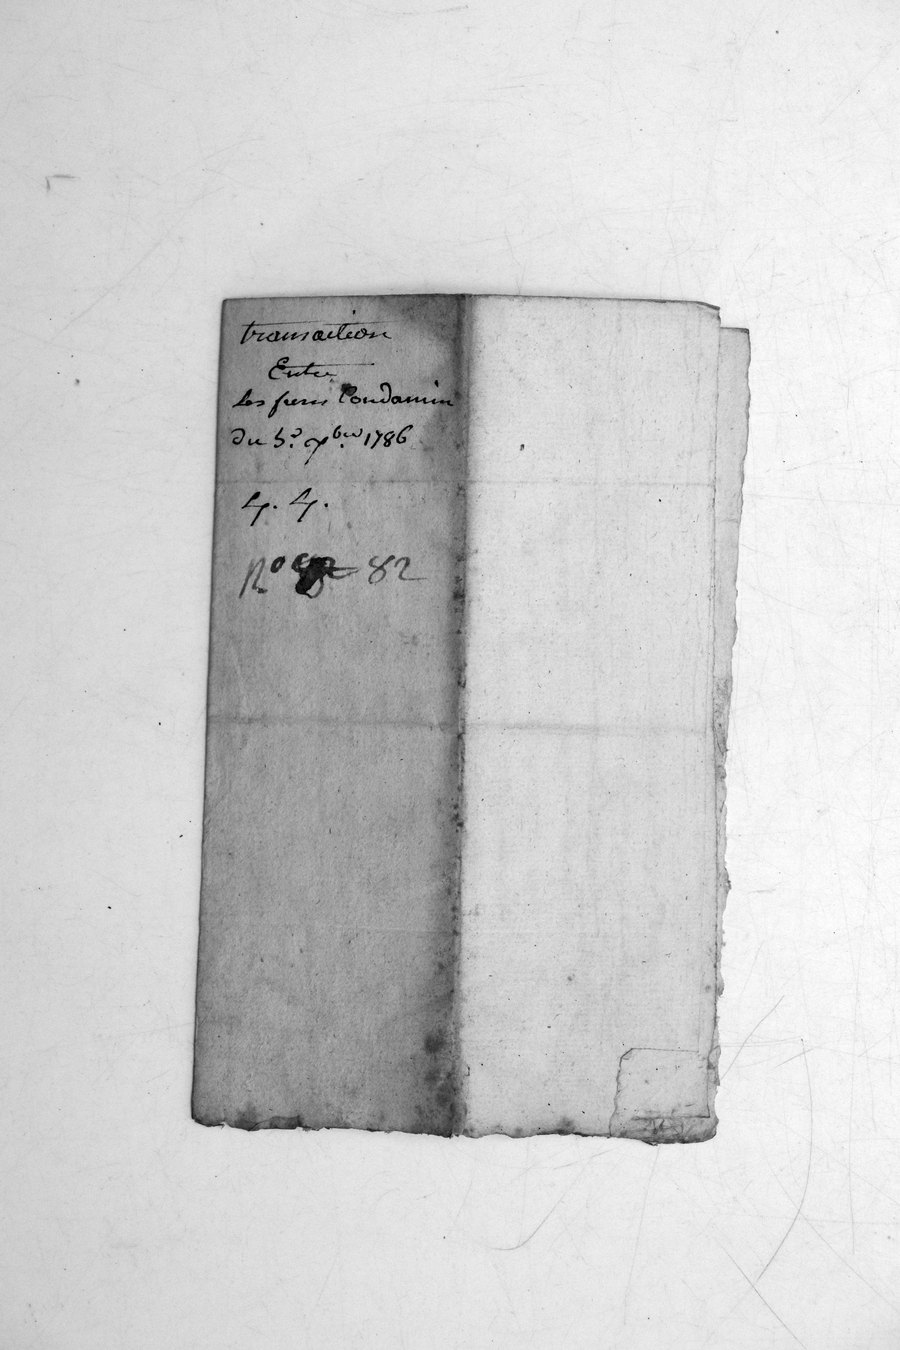 transaction
Entre
Les freres Condamin
du 5e. 7bre 1786
4. 4.
No 82